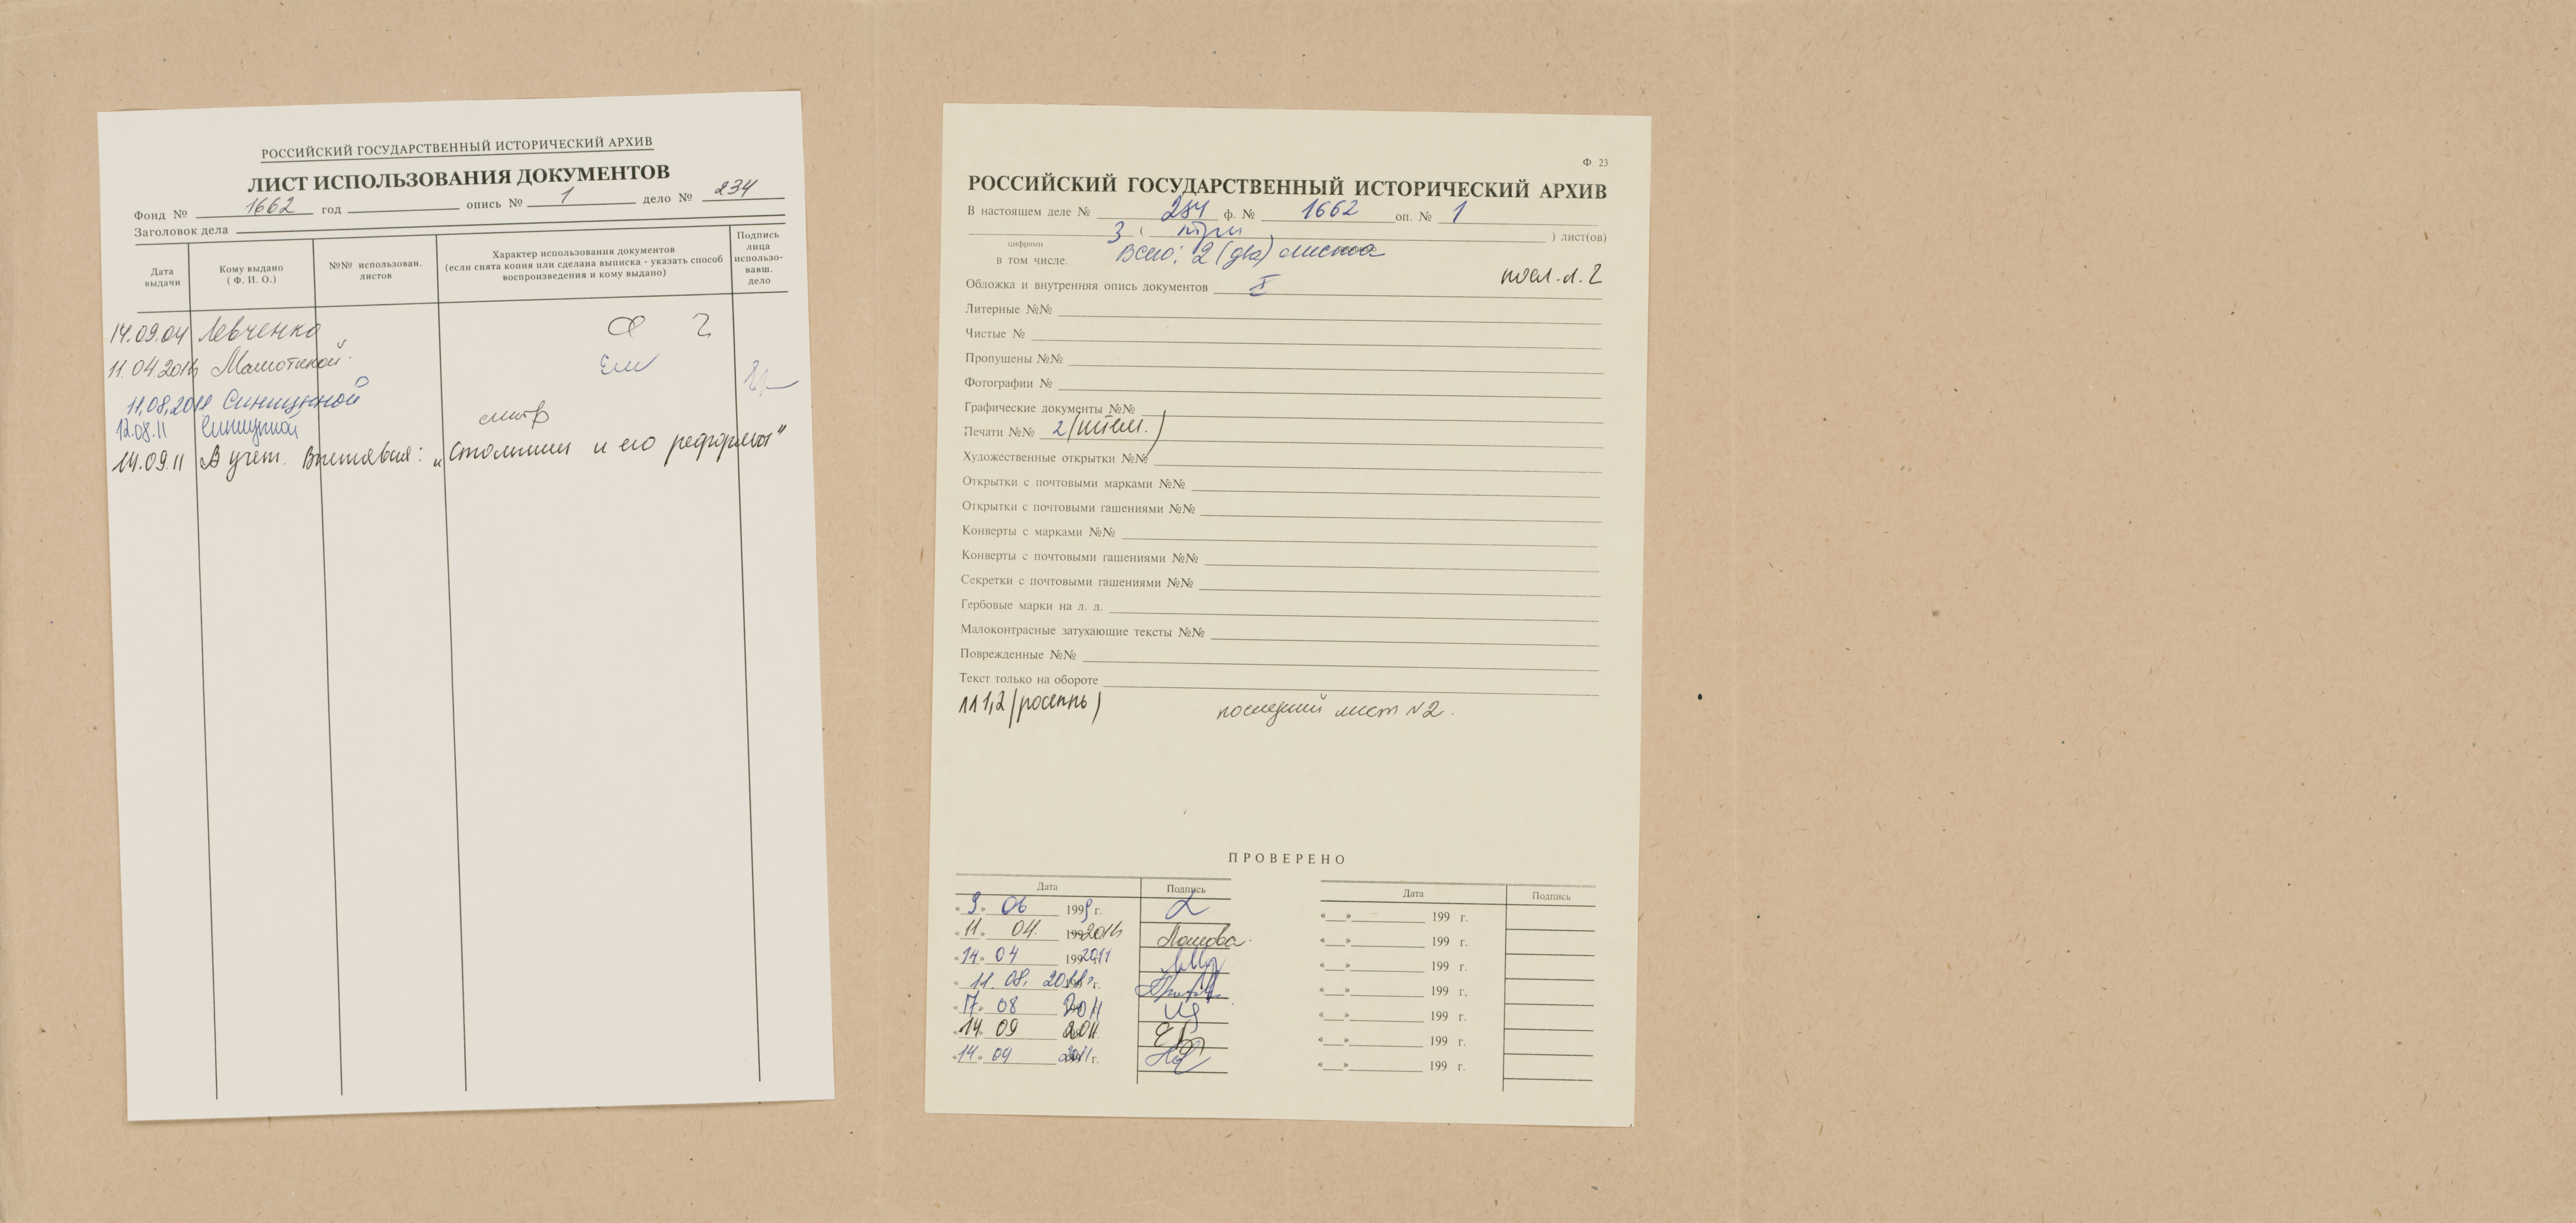 РОССИЙСКИЙ ГОСУДАРСТВЕННЫЙ ИСТОРИЧЕСКИЙ АРХИВ
ЛИСТ ИСПОЛЬЗОВАНИЯ ДОКУМЕНТОВ
Фонд № 1662 год опись № 1 дело № 234
Заголовок дела
Дата выдачи
Кому выдано ( Ф. И. О.)
№№ использован. листов
Характер использования документов
(если снята копия или сделана выписка - указать способ
воспроизведения и кому выдано)
Подпись лица использо-вавш. дело
14.09.04 Левченко
11.04.2011
11.08.2011 Синицыной
12.08.11 Синицыной смотр
14.09.11 В учет. Выставка: „Столыпин и его реформы"
Ф. 23
РОССИЙСКИЙ ГОСУДАРСТВЕННЫЙ ИСТОРИЧЕСКИЙ АРХИВ
В настоящем деле № 234 ф. № 1662 оп. № 1
3 ( три ) лист(ов)
цифрами
Всего: 2 (два) листа
в том числе.
посл. л. 2
Обложка и внутренняя опись документов I
Литерные №№
Чистые №
Пропущены №№
Фотографии №
Графические документы №№
Печати №№ 2 (штемп.)
Художественные открытки №№
Открытки с почтовыми марками №№
Открытки с почтовыми гашениями №№
Конверты с марками №№
Конверты с почтовыми гашениями №№
Секретки с почтовыми гашениями №№
Гербовые марки на л. л.
Малоконтрасные затухающие тексты №№
Поврежденные №№
Текст только на обороте
лл 1,2 (роспись) последний лист №2.
ПРОВЕРЕНО
Дата Подпись
« 9 » 06 1999 г.
« 11 » 04. 2011
« 14 » 04 2011
« 11. 08. 2011 г.
« 17 » 08 2011
« 14 » 09 2011
« 14 » 09 2011 г.
Дата Подпись
«__»________ 199 г.
«__»________ 199 г.
«__»________ 199 г.
«__»________ 199 г.
«__»________ 199 г.
«__»________ 199 г.
«__»________ 199 г.